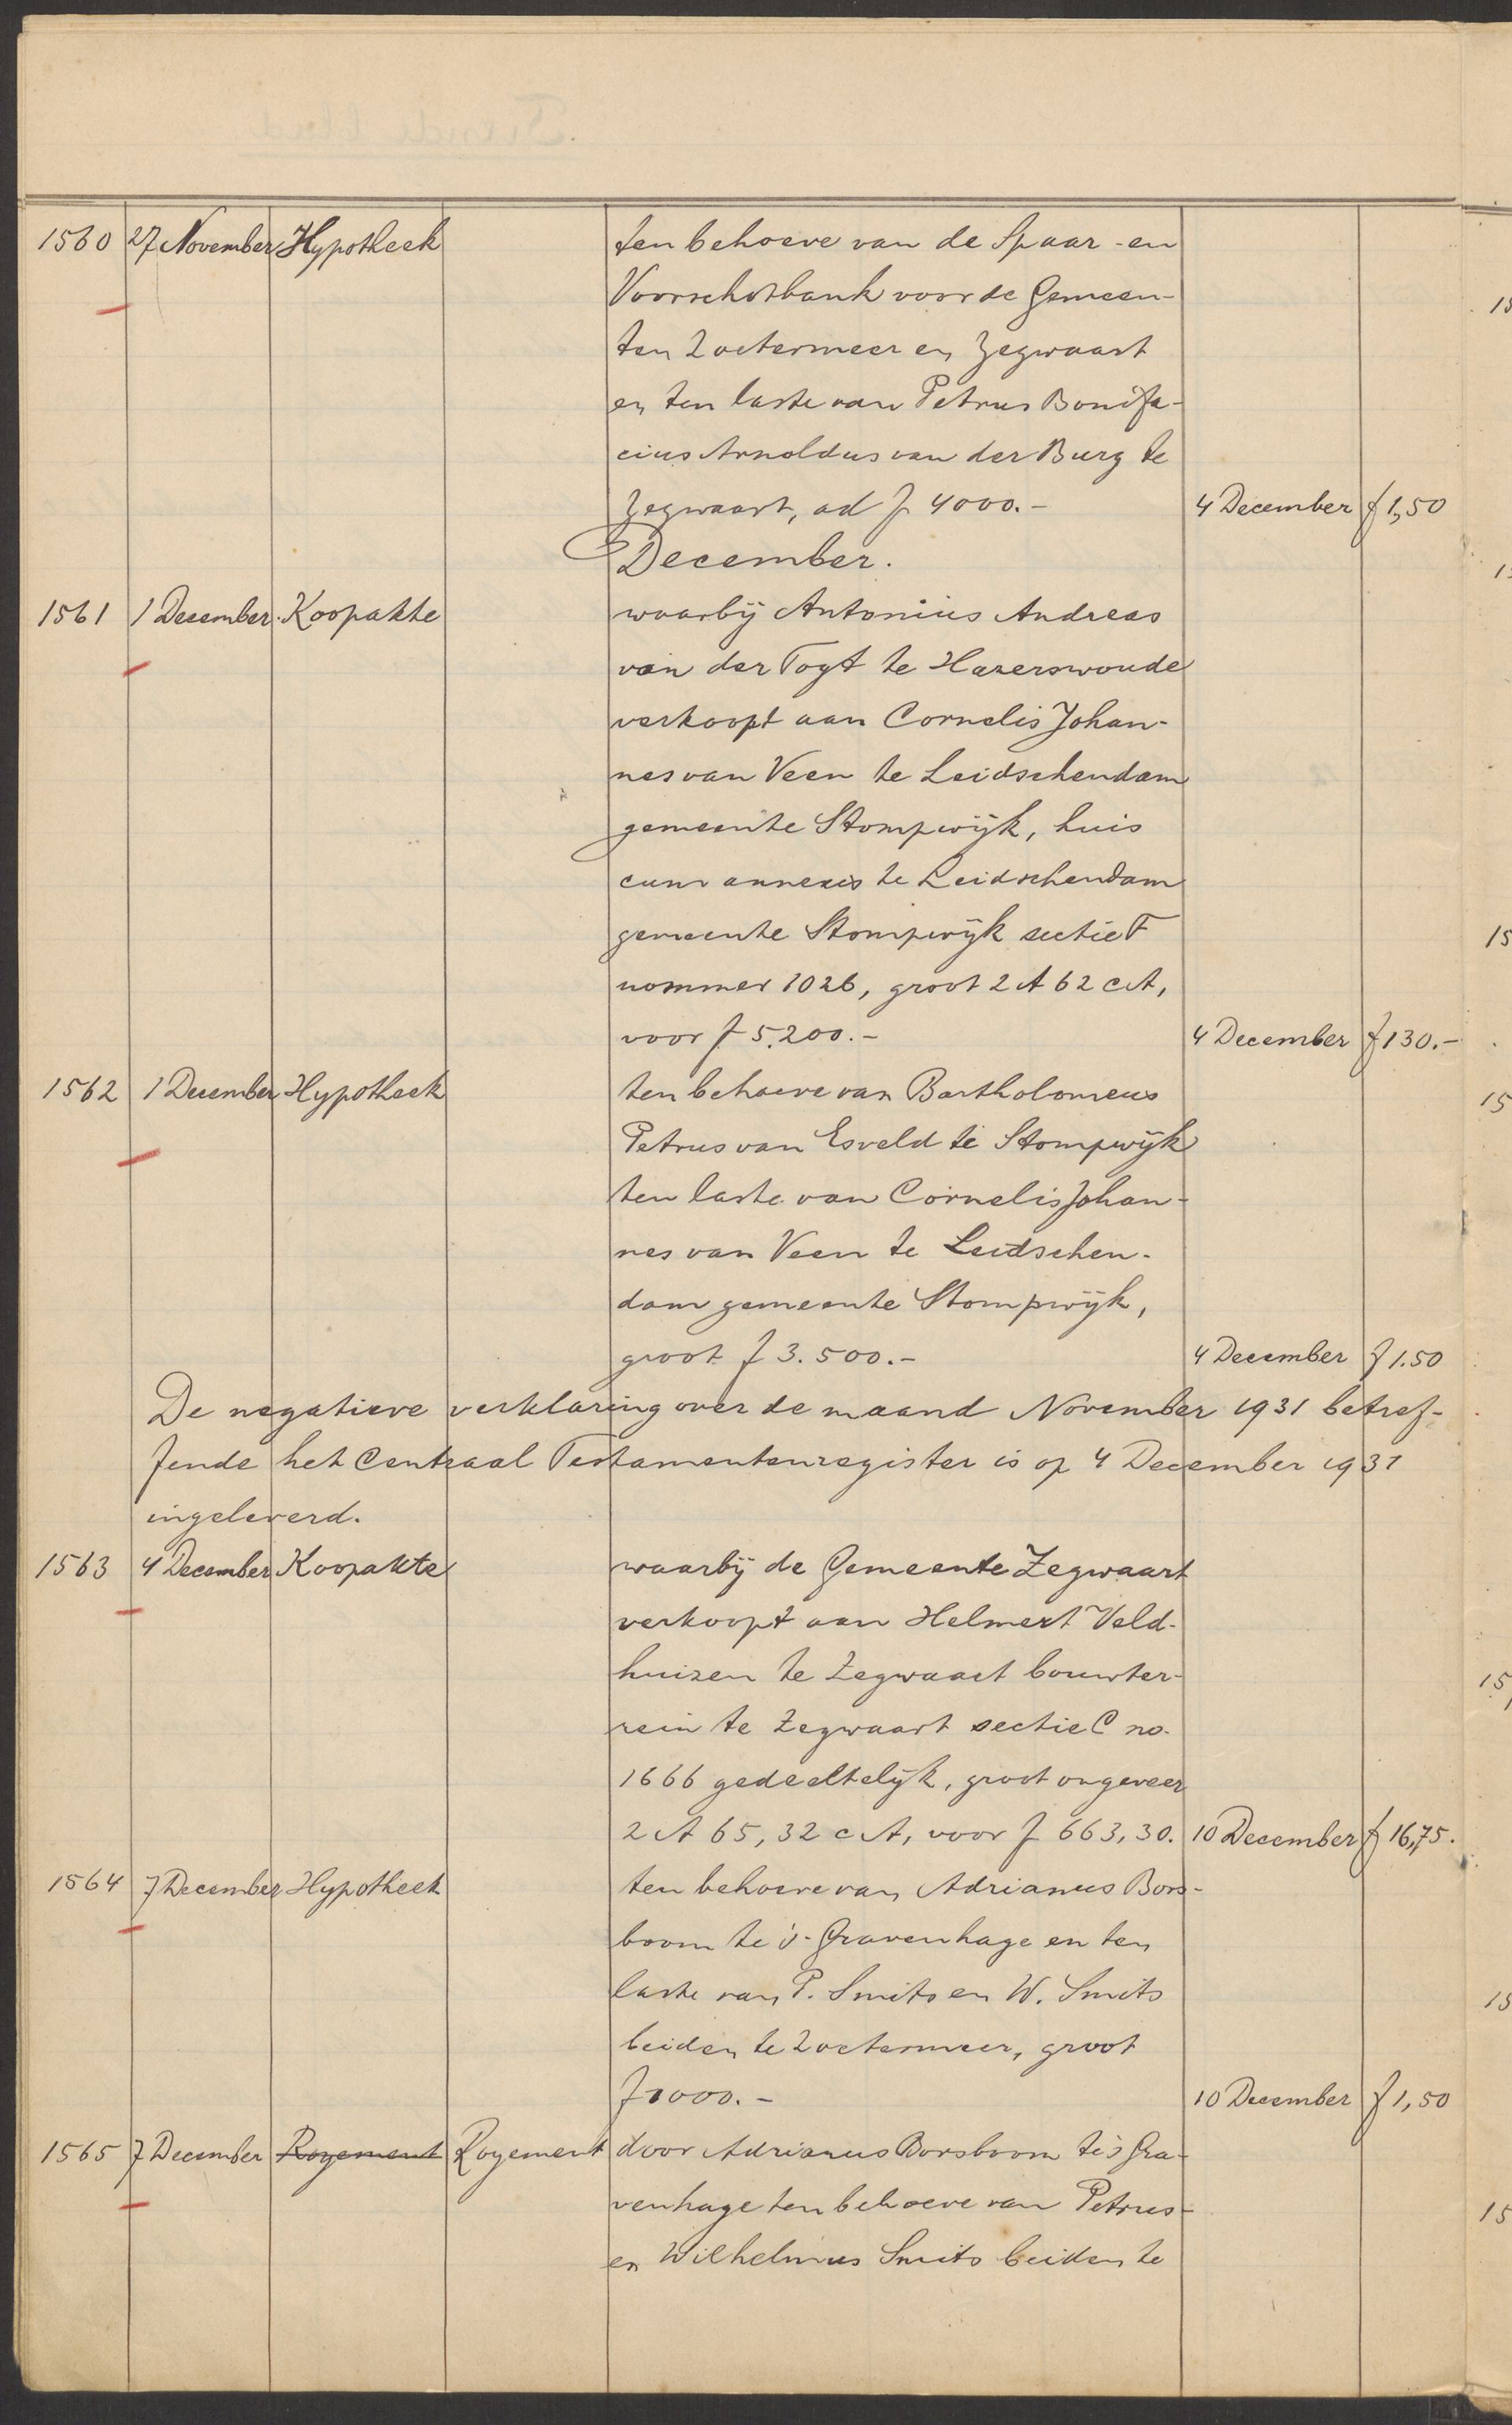 1560 27 November Hypotheek ten behoeve van de Spaar- en
Voorschotbank voor de Gemeen-
ten Zoetermeer en Zegwaart
en ten laste van Petrus Bonifa-
cius Arnoldus van der Burg te
Zegwaart, ad f 4000.- 4 December f 1,50
December.
1561 1 December Koopakte waarbij Antonius Andreas
van der Togt te Hazerswoude
verkoopt aan Cornelis Johan-
nes van Veen te Leidschendam
gemeente Stompwijk, huis
cum annexis te Leidschendam
gemeente Stompwijk sectie F
nommer 1026, groot 2 A 62 cA,
voor f 5.200.- 4 December f 130.-
1562 1 December Hypotheek ten behoeve van Bartholomeus
Petrus van Esveld te Stompwijk
ten laste van Cornelis Johan-
nes van Veen te Leidschen-
dam gemeente Stompwijk,
groot f 3.500.- 4 December f 1.50
De negatieve verklaring over de maand November 1931 betref-
fende het Centraal Testamentenregister is op 4 December 1931
ingeleverd.
1563 4 December Koopakte waarbij de Gemeente Zegwaart
verkoopt aan Helmert Veld-
huizen te Zegwaart bouwter-
rein te Zegwaart sectie C no.
1666 gedeeltelijk, groot ongeveer
2 A 65,32 cA, voor f 663,30. 10 December f 16,75.
1564 7 December Hypotheek ten behoeve van Adrianus Bors-
boom te 's-Gravenhage en ten
laste van P. Smits en W. Smits
beiden te Zoetermeer, groot
f 1000.- 10 December f 1,50
1565 7 December Royement Royement door Adrianus Borsboom te 's Gra-
venhage ten behoeve van Petrus-
en Wilhelmus Smits beiden te